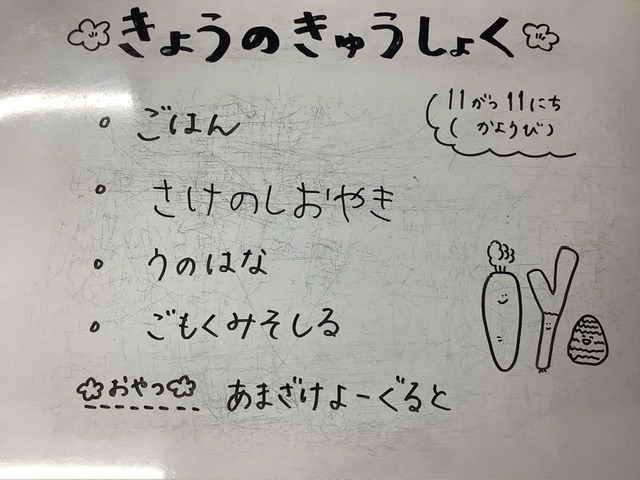 きょうのきゅうしょく
11がつ11にち
(かようび)
ごはん
さけのしおやき
うのはな
ごもくみそしる
おやつ あまざけよーぐると